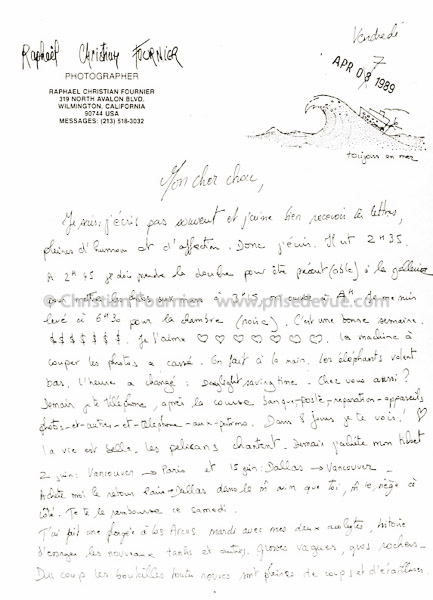 Vendredi
7
APR 08 1989
Raphaël Christian FOURNIER
PHOTOGRAPHER
RAPHAEL CHRISTIAN FOURNIER
319 NORTH AVALON BLVD.
WILMINGTON, CALIFORNIA
90744 USA
MESSAGES: (213) 518-3032
toujours en mer
Mon cher chou,
Je sais: j'écris pas souvent et j'aime bien recevoir tes lettres,
pleines d'humour et d'affection. Donc j'écris. Il est 2H35.
A 2H45 je dois prendre la douche pour être présent(able) à la gallerie
© Christian Fournier - www.prisedevue.com
levé à 6H30 pour la chambre (noire). C'est une bonne semaine.
$ $ $ $ $ $ $. Je t'aime ♡ ♡ ♡ ♡ ♡ ♡ ♡. La machine à
couper les photos a cassé. On fait à la main. Les éléphants volent
bas. L'heure a changé: Daylight saving time. Chez vous aussi?
Demain je te téléphone, après la course banque-poste-reparation-appareils
photos-et-autres-et-téléphone-aux-
Dans 8 jours je te vois! ♡
La vie est belle. Les pelicans chantent. Demain j'achète mon ticket
2 juin: Vancouver → Paris et 15 juin: Dallas → Vancouver.
Achète moi le retour Paris-Dallas dans le m avion que toi, m le, siège à
côté. Je te le rembourse ce samedi.
J'ai fait une plongée à los Arcos mardi avec mes deux acolytes, histoire
d'essayer les nouveaux tanks et autres. Grosses vagues, gros rochers.
Du coup les bouteilles toutes neuves sont pleines de coups et d'éraflures.